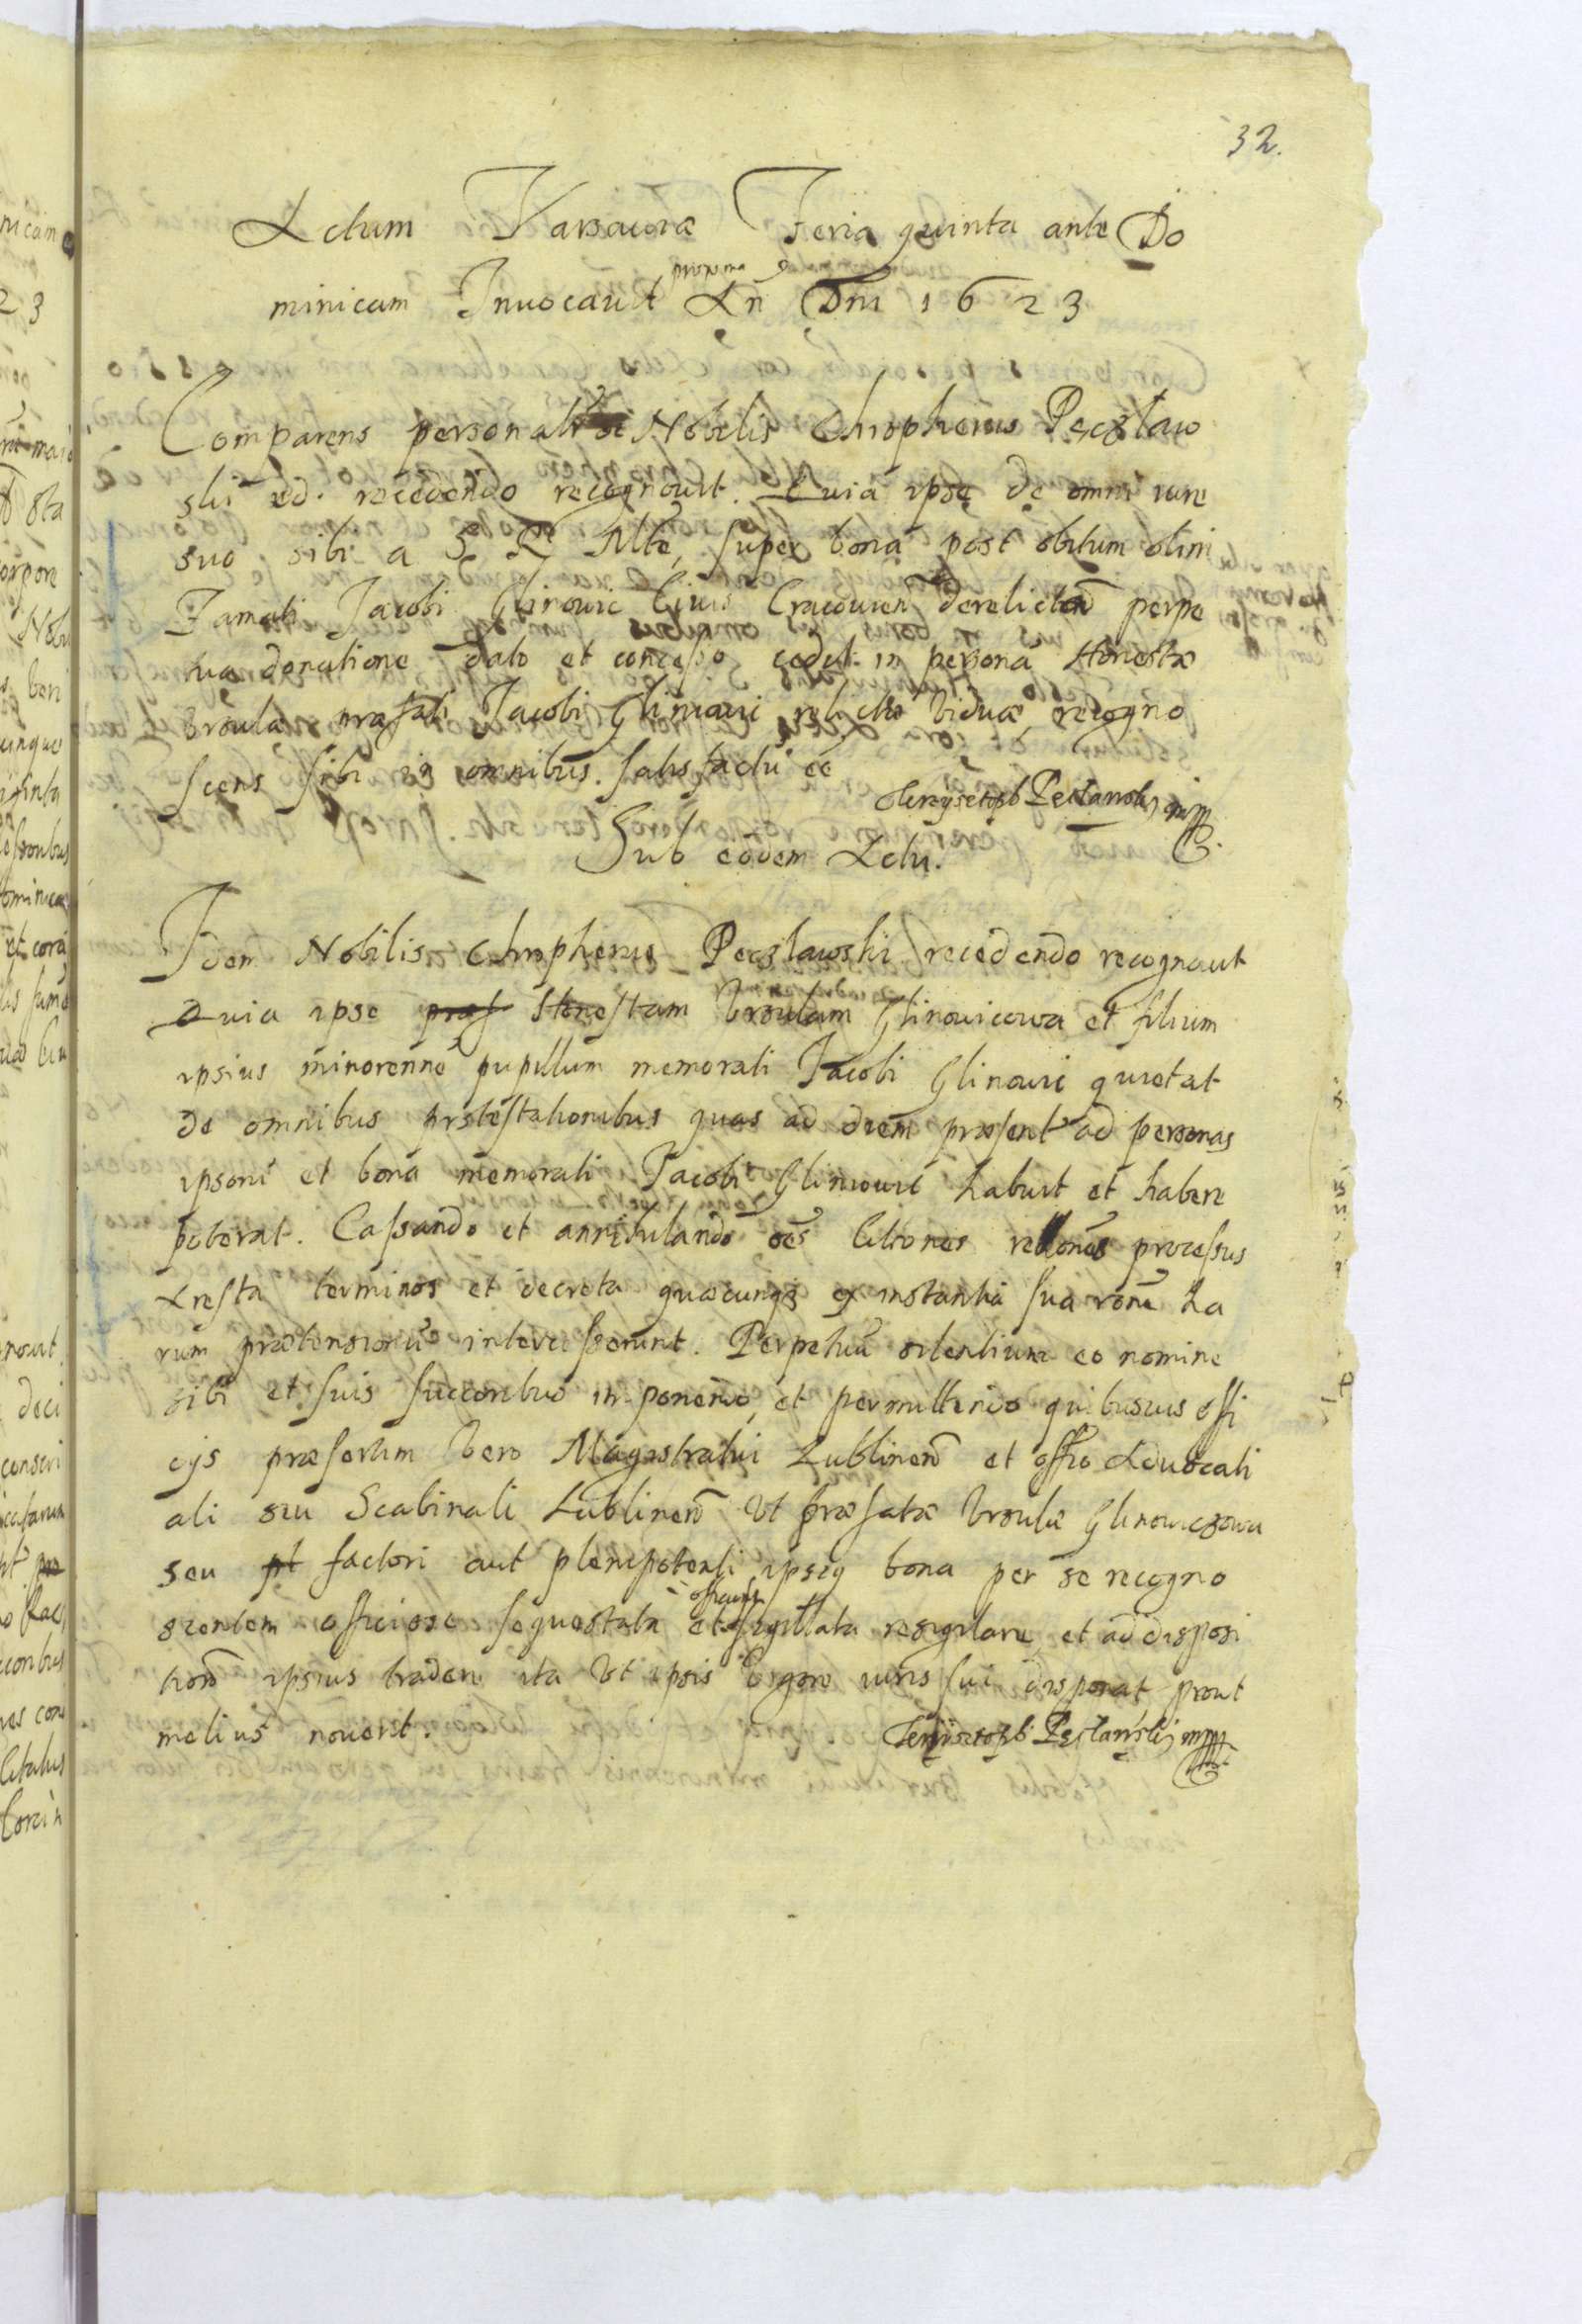 32.
Actum Varsauiæ Feria quinta ante Do
proxima
minicam Inuocauit An Dni 1623
Comparens personalr Nobilis Chrophorus Pecslaw
ski recedendo recognouit. Quia ipse de omni iure
suo sibi a S. R. Mtte, super bona post obitum olim
Famati Jacobi Glinouic Ciuis Cracouien derelicta perpe
tua donatione dato et concesso cedit in persona Honestæ
Vrsulæ præfati Jacobi Glinouic relictæ Viduæ, recogno
scens sibi in omnibus satisfactũ ee
Krzysztoph Peclawski mpp
Sub eodem Actu.
Idem Nobilis Chrophorus Pecslawski recedendo recognouit
Quia ipse Honestam Vrsulam Glinouicowa et filium
ipsius minorenne pupillum memorati Jacobi Glinouic quietat
de omnibus protestationibus quas ad diem præsent ad personas
ipsorũ et bona memorati Jacobi Glinouic habuit et habere
poterat. Cassando et annihilando oes Citiones rellones processus
Aresta terminos et decreta quæcunqs ex instantia sua rone ha
rum prætensionũ interuesserunt. Perpetuũ silentium eo nomine
sibi et suis succoribus imponendo, et permittendo quibusuis offi
cys præsertim Vero Magistratui Lublinen et offio Aduocati
ali siu Scabinali Lublinen Vt præfatæ Vrsulæ Glinouiczowa
seu pl factori aut plenipotenti ipsiq bona per se recogno
officiose
scentem officiose sequestrata et sigillata resigilare et ad disposi
tionẽ ipsius tradere ita Vt ipsis Vigore iuris sui disponat prout
melius nouerit.
Krzysztoph Peclawski mpp